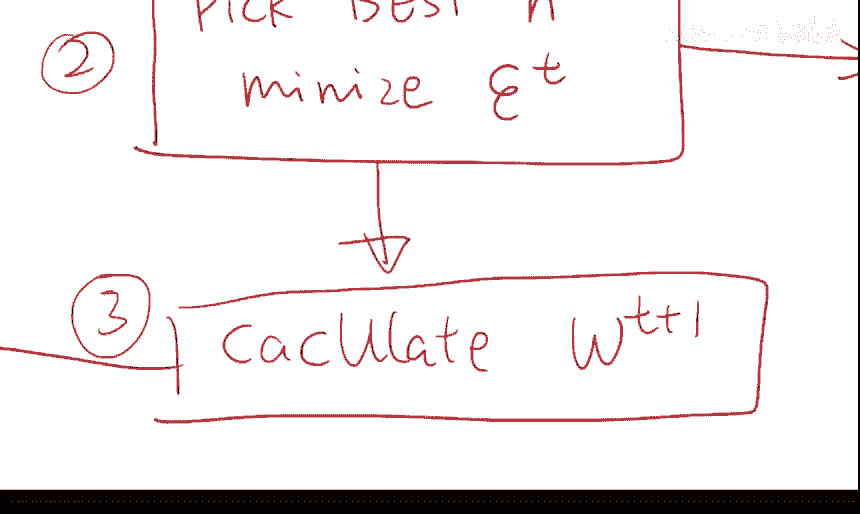 ② PICK BEST h
minize ε^t
③ cacUlate w^{t+1}